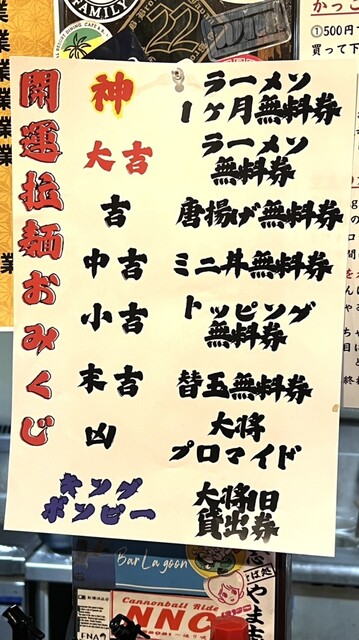 FAMILY
開運拉麺おみくじ
神 ラーメン
1ヶ月無料券
大吉 ラーメン
無料券
吉 唐揚げ無料券
中吉 ミニ丼無料券
小吉 トッピング
無料券
末吉 替玉無料券
凶 大将
プロマイド
キング
ボンビー
大将1日
貸出券
①500円
買って下
Bar Lagoon
Cannonball Ride
NNC
やま